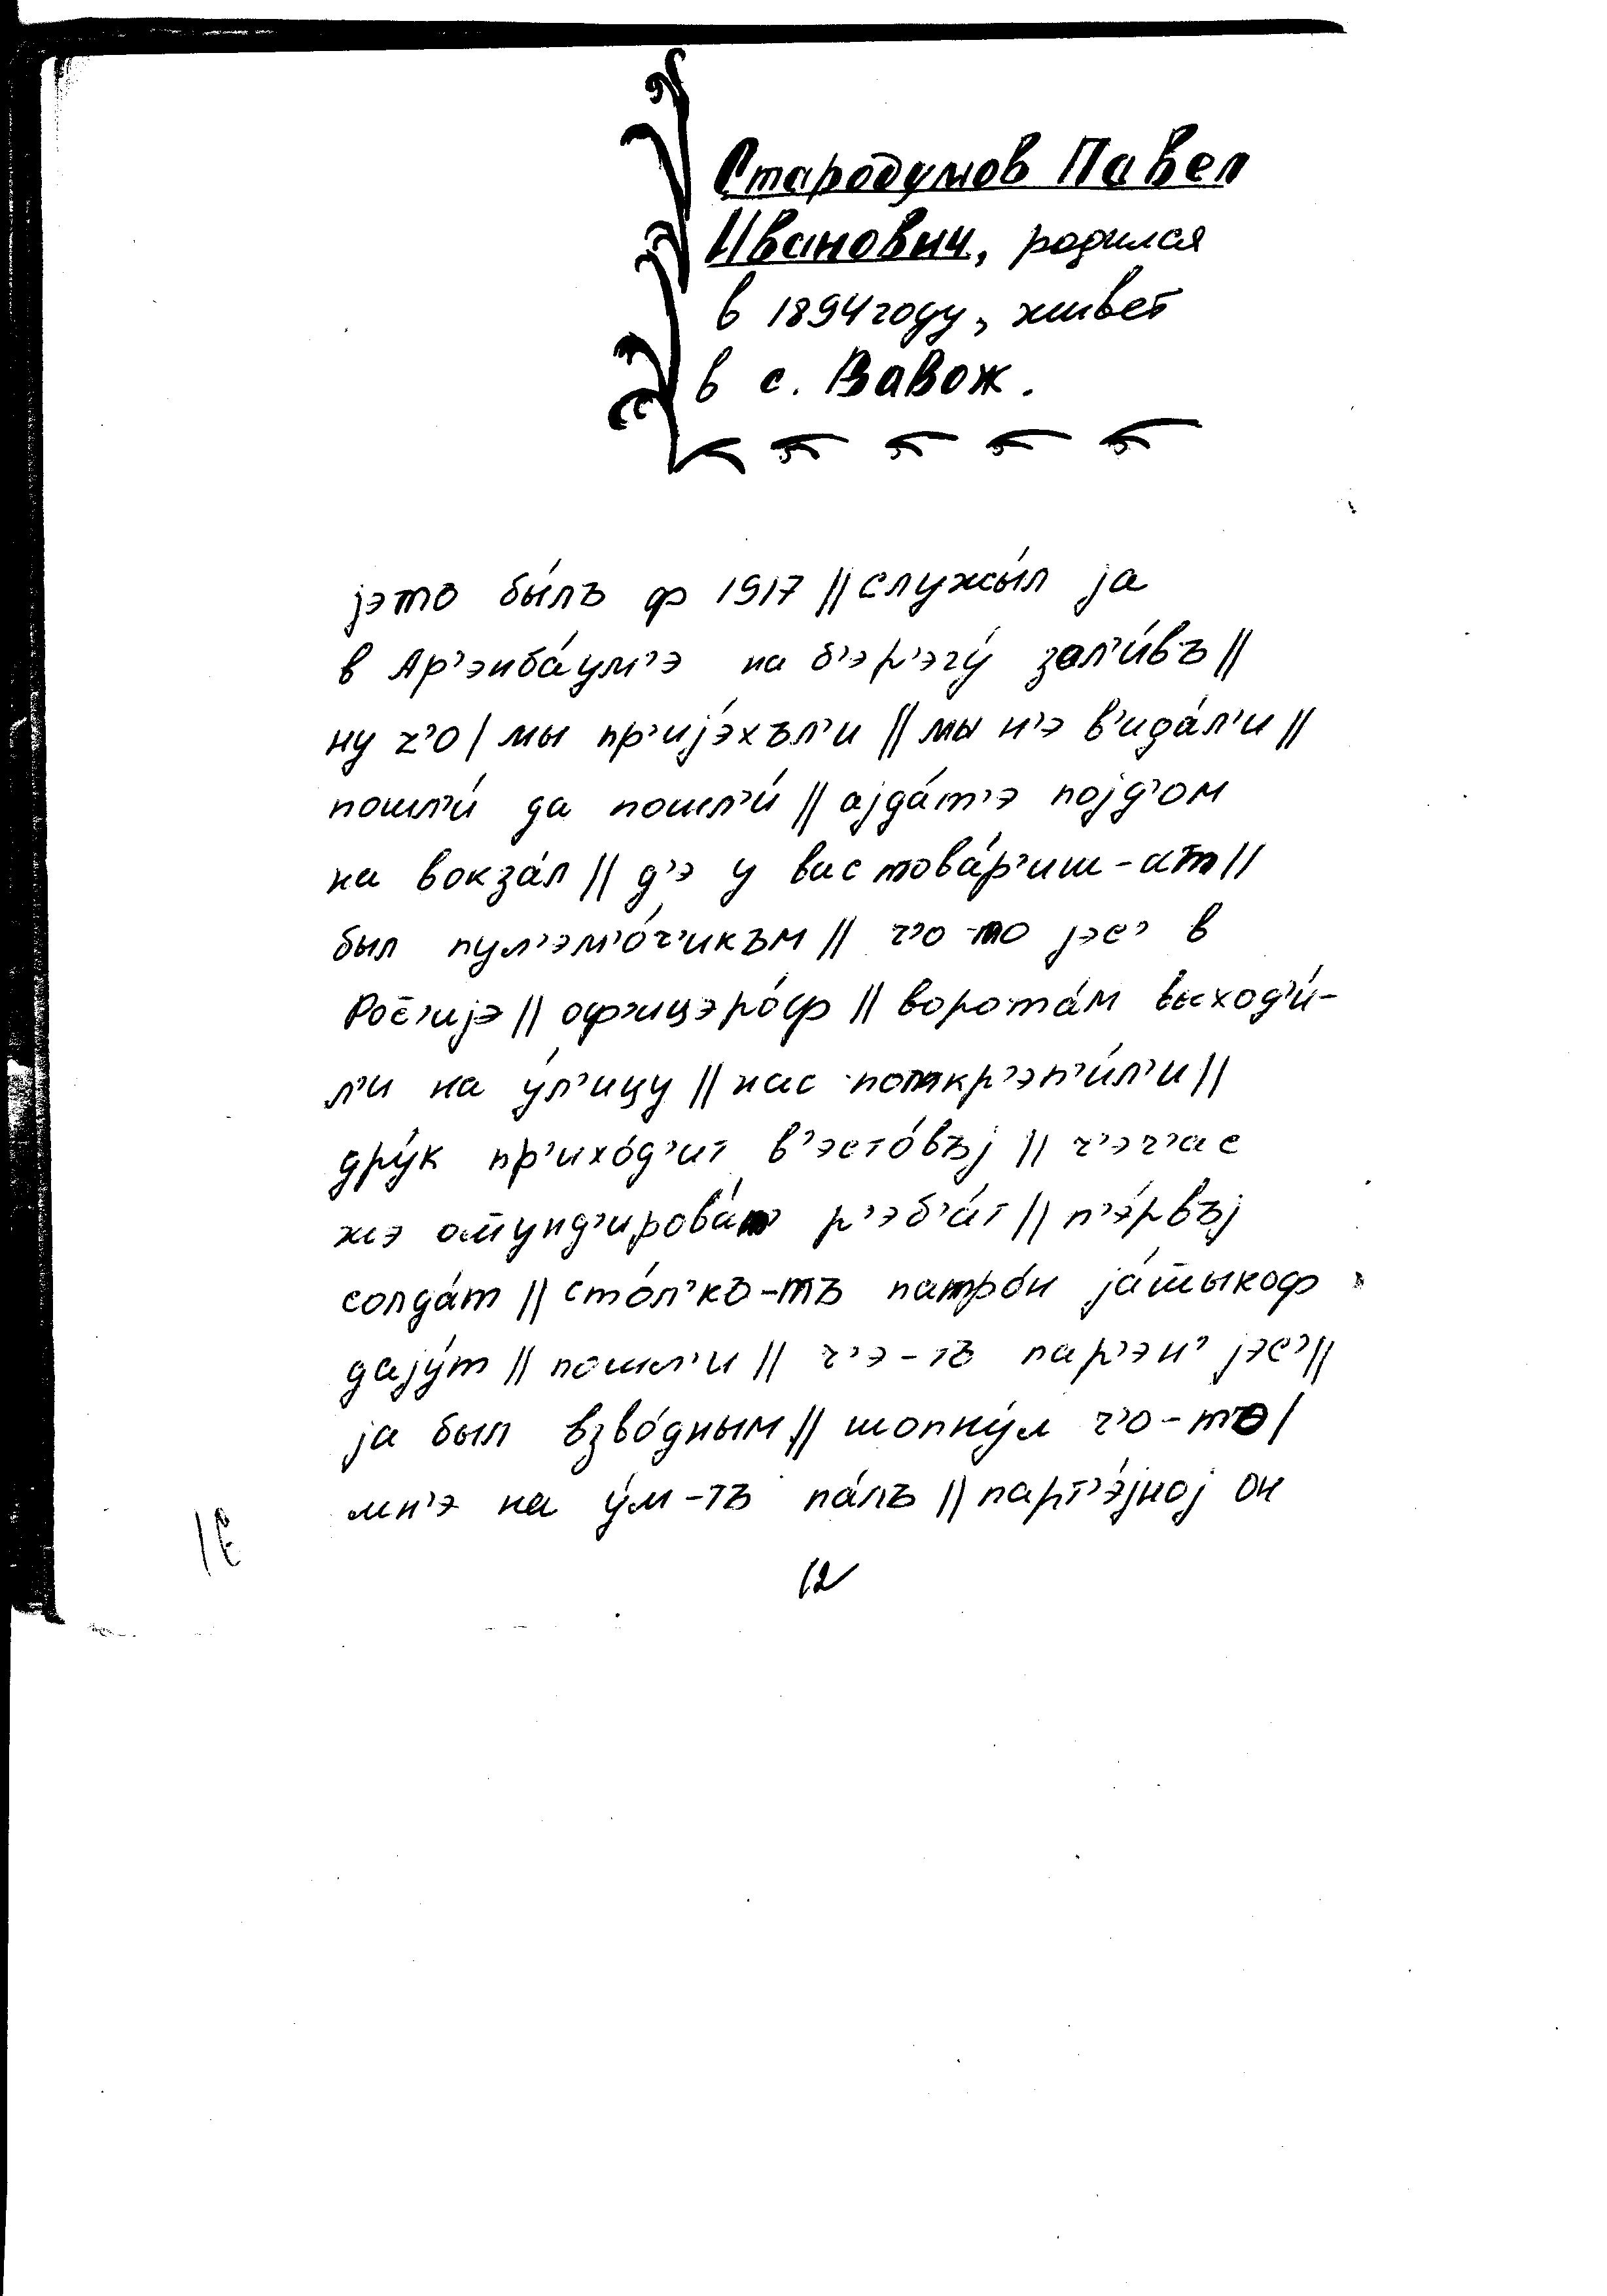 Стародумов Павел
Иванович, родился
в 1894 году, живет
в с. Вавож.
jэто бы́лъ ф 1917 || служы́л jа
в Ар’энба́ум’э на б’эр’эгу́ зал’и́въ ||
ну ч’о | мы пр’иjэ́хъл’и || мы н’э в’ида́л’и ||
пошл’и́ да пошл’и́ || аjда́т’э поjд’ом
на вокза́л || д’э у вас това́р’иш-ат ||
был пул’эм’о́ч’икъм || ч’о-то jэс’ в
Рос̄’иjэ || оф’ицэро́ф || ворота́м выход’и́-
л’и на у́л’ицу || нас поткр’эп’и́л’и ||
дру́к пр’ихо́д’ит в’эсто́въj || ч’эч’ас
жэ омунд’ирова́т’ р’эб’а́т || п’э́рвъj
солда́т || сто́л’къ-тъ патро́н jа́тыкоф
даjу́т || пошл’и || ч’э-тъ пар’эн’ jэс’ ||
jа был взво́дным || шопну́л ч’о-то |
мн’э на у́м-тъ па́лъ || парт’э́jноj он
12